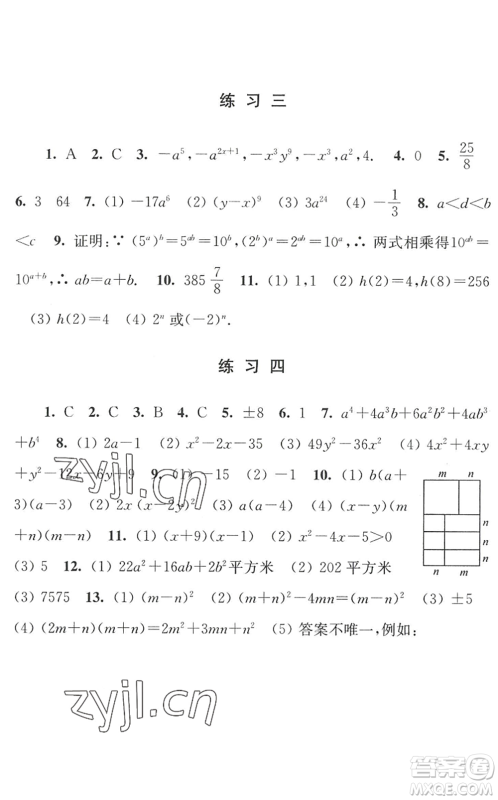 练 习 三
1. A 2. C 3. −a⁵,−a²ˣ⁺¹,−x³y⁹,−x³,a²,4. 4. 0 5. 25/8
6. 3 64 7. (1) −17a⁶ (2) (y−x)⁹ (3) 3a²⁴ (4) −1/3 8. a<d<b
<c 9. 证明:∵ (5ᵃ)ᵇ=5ᵃᵇ=10ᵇ,(2ᵇ)ᵃ=2ᵃᵇ=10ᵃ,∴ 两式相乘得10ᵃᵇ=
10ᵃ⁺ᵇ,∴ ab=a+b. 10. 385 7/8 11. (1) 1,1 (2) h(4)=16,h(8)=256
(3) h(2)=4 (4) 2ⁿ 或(−2)ⁿ.
练 习 四
1. C 2. C 3. C 4. B 5. ±8 6. 1 7. a⁴+4a³b+6a²b²+4ab³
+b⁴ 8. (1) 2a−1 (2) x²−2x−35 (3) 49y²−x² (4) 4x²−4xy
+y²−12x+6y+9 9. (1)−15 (2) −1 10. (1) b(a+
3)(a−3) (2) 2x(x−2y)² (3) a(a−4) (4) (m
+n)(m−n) 11. (1) (x+9)(x−1) (2) x²−4x−5>0
(3) 5 12. (1) 22a²+16ab+2b²平方米 (2) 202 平方米
(3) 7575 13. (1) (m−n)² (2) (m+n)²−4mn=(m−n)² (3) ±5
(4) (2m+n)(m+n)=2m²+3mn+n² (5) 答案不唯一,例如:
m n
n
n
n m
zyjl.cn
zyjl.cn
答案圈
MXQE.COM